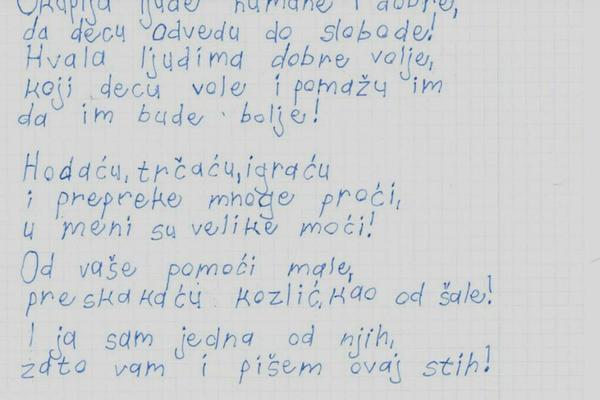 Okuplja ljude humane i dobre,
da decu odvedu do slobode!
Hvala ljudima dobre volje,
koji decu vole i pomažu im
da im bude bolje!
Hodaću, trčaću, igraću
i prepreke mnoge proći,
u meni su velike moći!
Od vaše pomoći male,
preskakaću kozlić, kao od šale!
I ja sam jedna od njih,
zato vam i pišem ovaj stih!